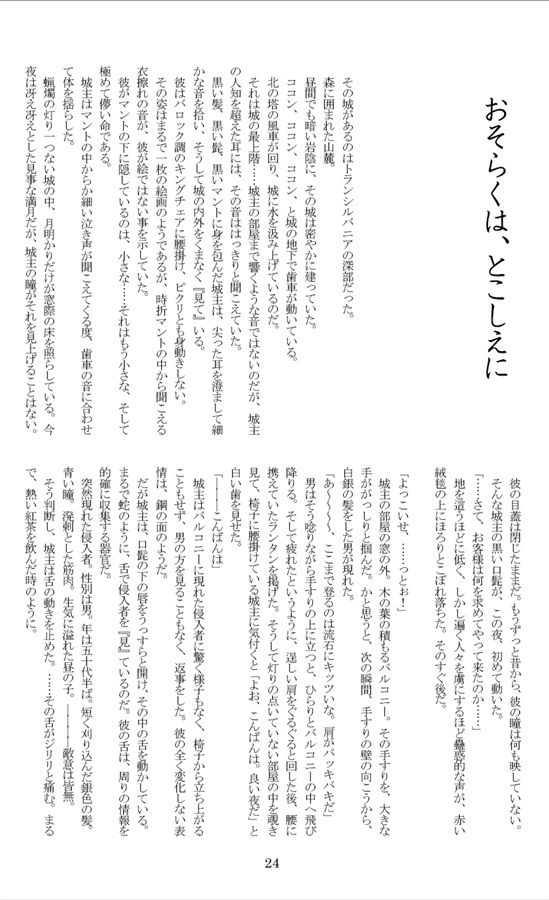 おそらくは、とこしえに
その城があるのはトランシルバニアの深部だった。
森に囲まれた山麓。
昼間でも暗い岩陰に、その城は密やかに建っていた。
ココン、ココン、ココン、と城の地下で歯車が動いている。
北の塔の風車が回り、城に水を汲み上げているのだ。
それは城の最上階……城主の部屋まで響くような音ではないのだが、城主
の人知を超えた耳には、その音ははっきりと聞こえていた。
黒い髪、黒い髭、黒いマントに身を包んだ城主は、尖った耳を澄まして細
かな音を拾い、そうして城の内外をくまなく『見て』いる。
彼はバロック調のキングチェアに腰掛け、ピクリとも身動きしない。
その姿はまるで一枚の絵画のようであるが、時折マントの中から聞こえる
衣擦れの音が、彼が絵ではない事を示していた。
彼がマントの下に隠しているのは、小さな……それはもう小さな、そして
極めて儚い命である。
城主はマントの中からか細い泣き声が聞こえてくる度、歯車の音に合わせ
て体を揺らした。
蝋燭の灯り一つない城の中、月明かりだけが窓際の床を照らしている。今
夜は冴え冴えとした見事な満月だが、城主の瞳がそれを見上げることはない。
彼の目蓋は閉じたままだ。もうずっと昔から、彼の瞳は何も映していない。
そんな城主の黒い口髭が、この夜、初めて動いた。
「……さて、お客様は何を求めてやって来たのか……」
地を這うほどに低く、しかし遍く人々を虜にするほど蠱惑的な声が、赤い
絨毯の上にほろりとこぼれ落ちた。そのすぐ後だ。
「よっこいせ、……っとぉ！」
城主の部屋の窓の外。木の葉の積もるバルコニー。その手すりを、大きな
手ががっしりと掴んだ。かと思うと、次の瞬間、手すりの壁の向こうから、
白銀の髪をした男が現れた。
「あ〜〜〜〜、ここまで登るのは流石にキッツいな。肩がバッキバキだ」
男はそう唸りながら手すりの上に立つと、ひらりとバルコニーの中へ飛び
降りる。そして疲れたというように、逞しい肩をぐるぐると回した後、腰に
携えていたランタンを掲げた。そうして灯りの点いていない部屋の中を覗き
見て、椅子に腰掛けている城主に気付くと「よお、こんばんは。良い夜だ」と
白い歯を見せた。
「――こんばんは」
城主はバルコニーに現れた侵入者に驚く様子もなく、椅子から立ち上がる
こともせず、男の方を見ることもなく、返事をした。彼の全く変化しない表
情は、鋼の面のようだ。
だが城主は、口髭の下の唇をうっすらと開け、その中の舌を動かしている。
まるで蛇のように、舌で侵入者を『見』ているのだ。彼の舌は、周りの情報を
的確に収集する器官だ。
突然現れた侵入者。性別は男。年は五十代半ば。短く刈り込んだ銀色の髪。
青い瞳。溌剌とした筋肉。生気に溢れた昼の子。――敵意は皆無。
そう判断し、城主は舌の動きを止めた。……その舌がジリリと痛む。まる
で、熱い紅茶を飲んだ時のように。
24